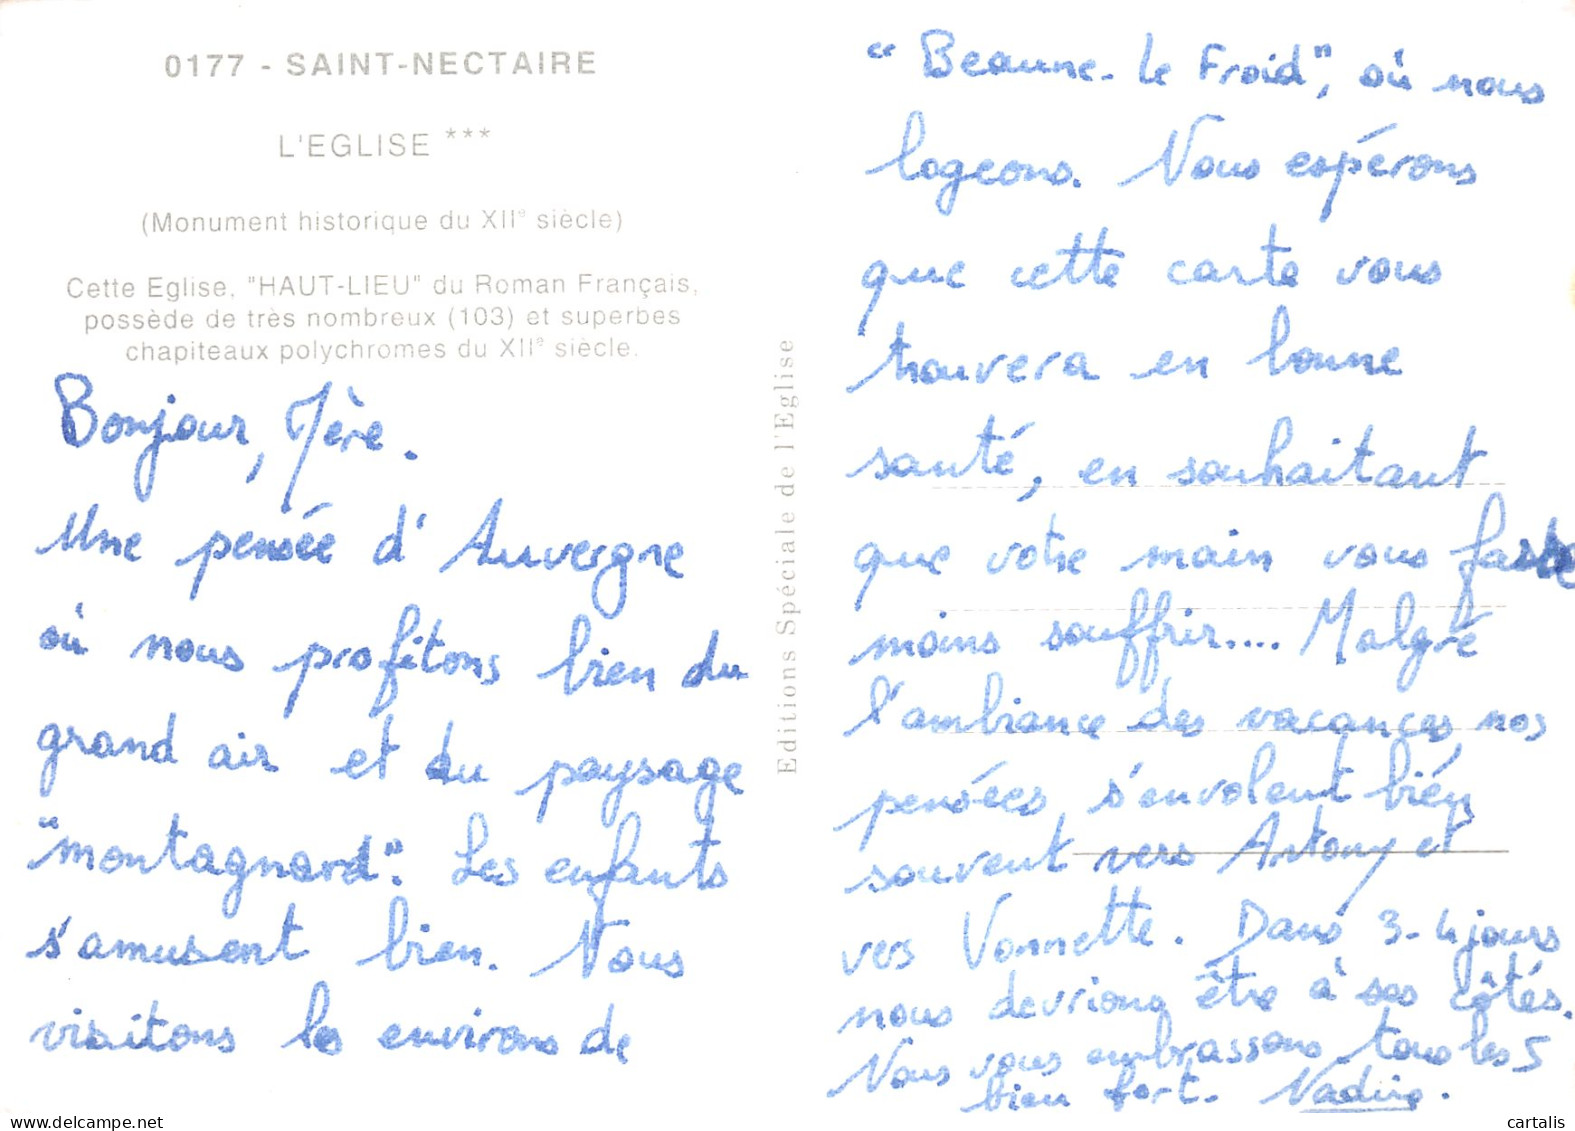 0177 - SAINT-NECTAIRE
L'EGLISE ***
(Monument historique du XIIe siècle)
Cette Eglise, "HAUT-LIEU" du Roman Français,
possède de très nombreux (103) et superbes
chapiteaux polychromes du XIIe siècle.
Bonjour, Mère.
Une pensée d'Auvergne
où nous profitons bien du
grand air et du paysage
"montagnard". Les enfants
s'amusent bien. Nous
visitons les environs de
Editions Spéciale de l'Eglise
"Beaune-Le Froid", où nous
logeons. Nous espérons
que cette carte vous
trouvera en bonne
santé, en souhaitant
que votre main vous fasse
moins souffrir.... Malgré
l'ambiance des vacances, nos
pensées s'envolent bien
souvent vers Antony et
vers Vonnette. Dans 3-4 jours
nous devrions être à ses côtés.
Nous vous embrassons tous les 5
bien fort. Nadine.
delcampe.net
cartalis